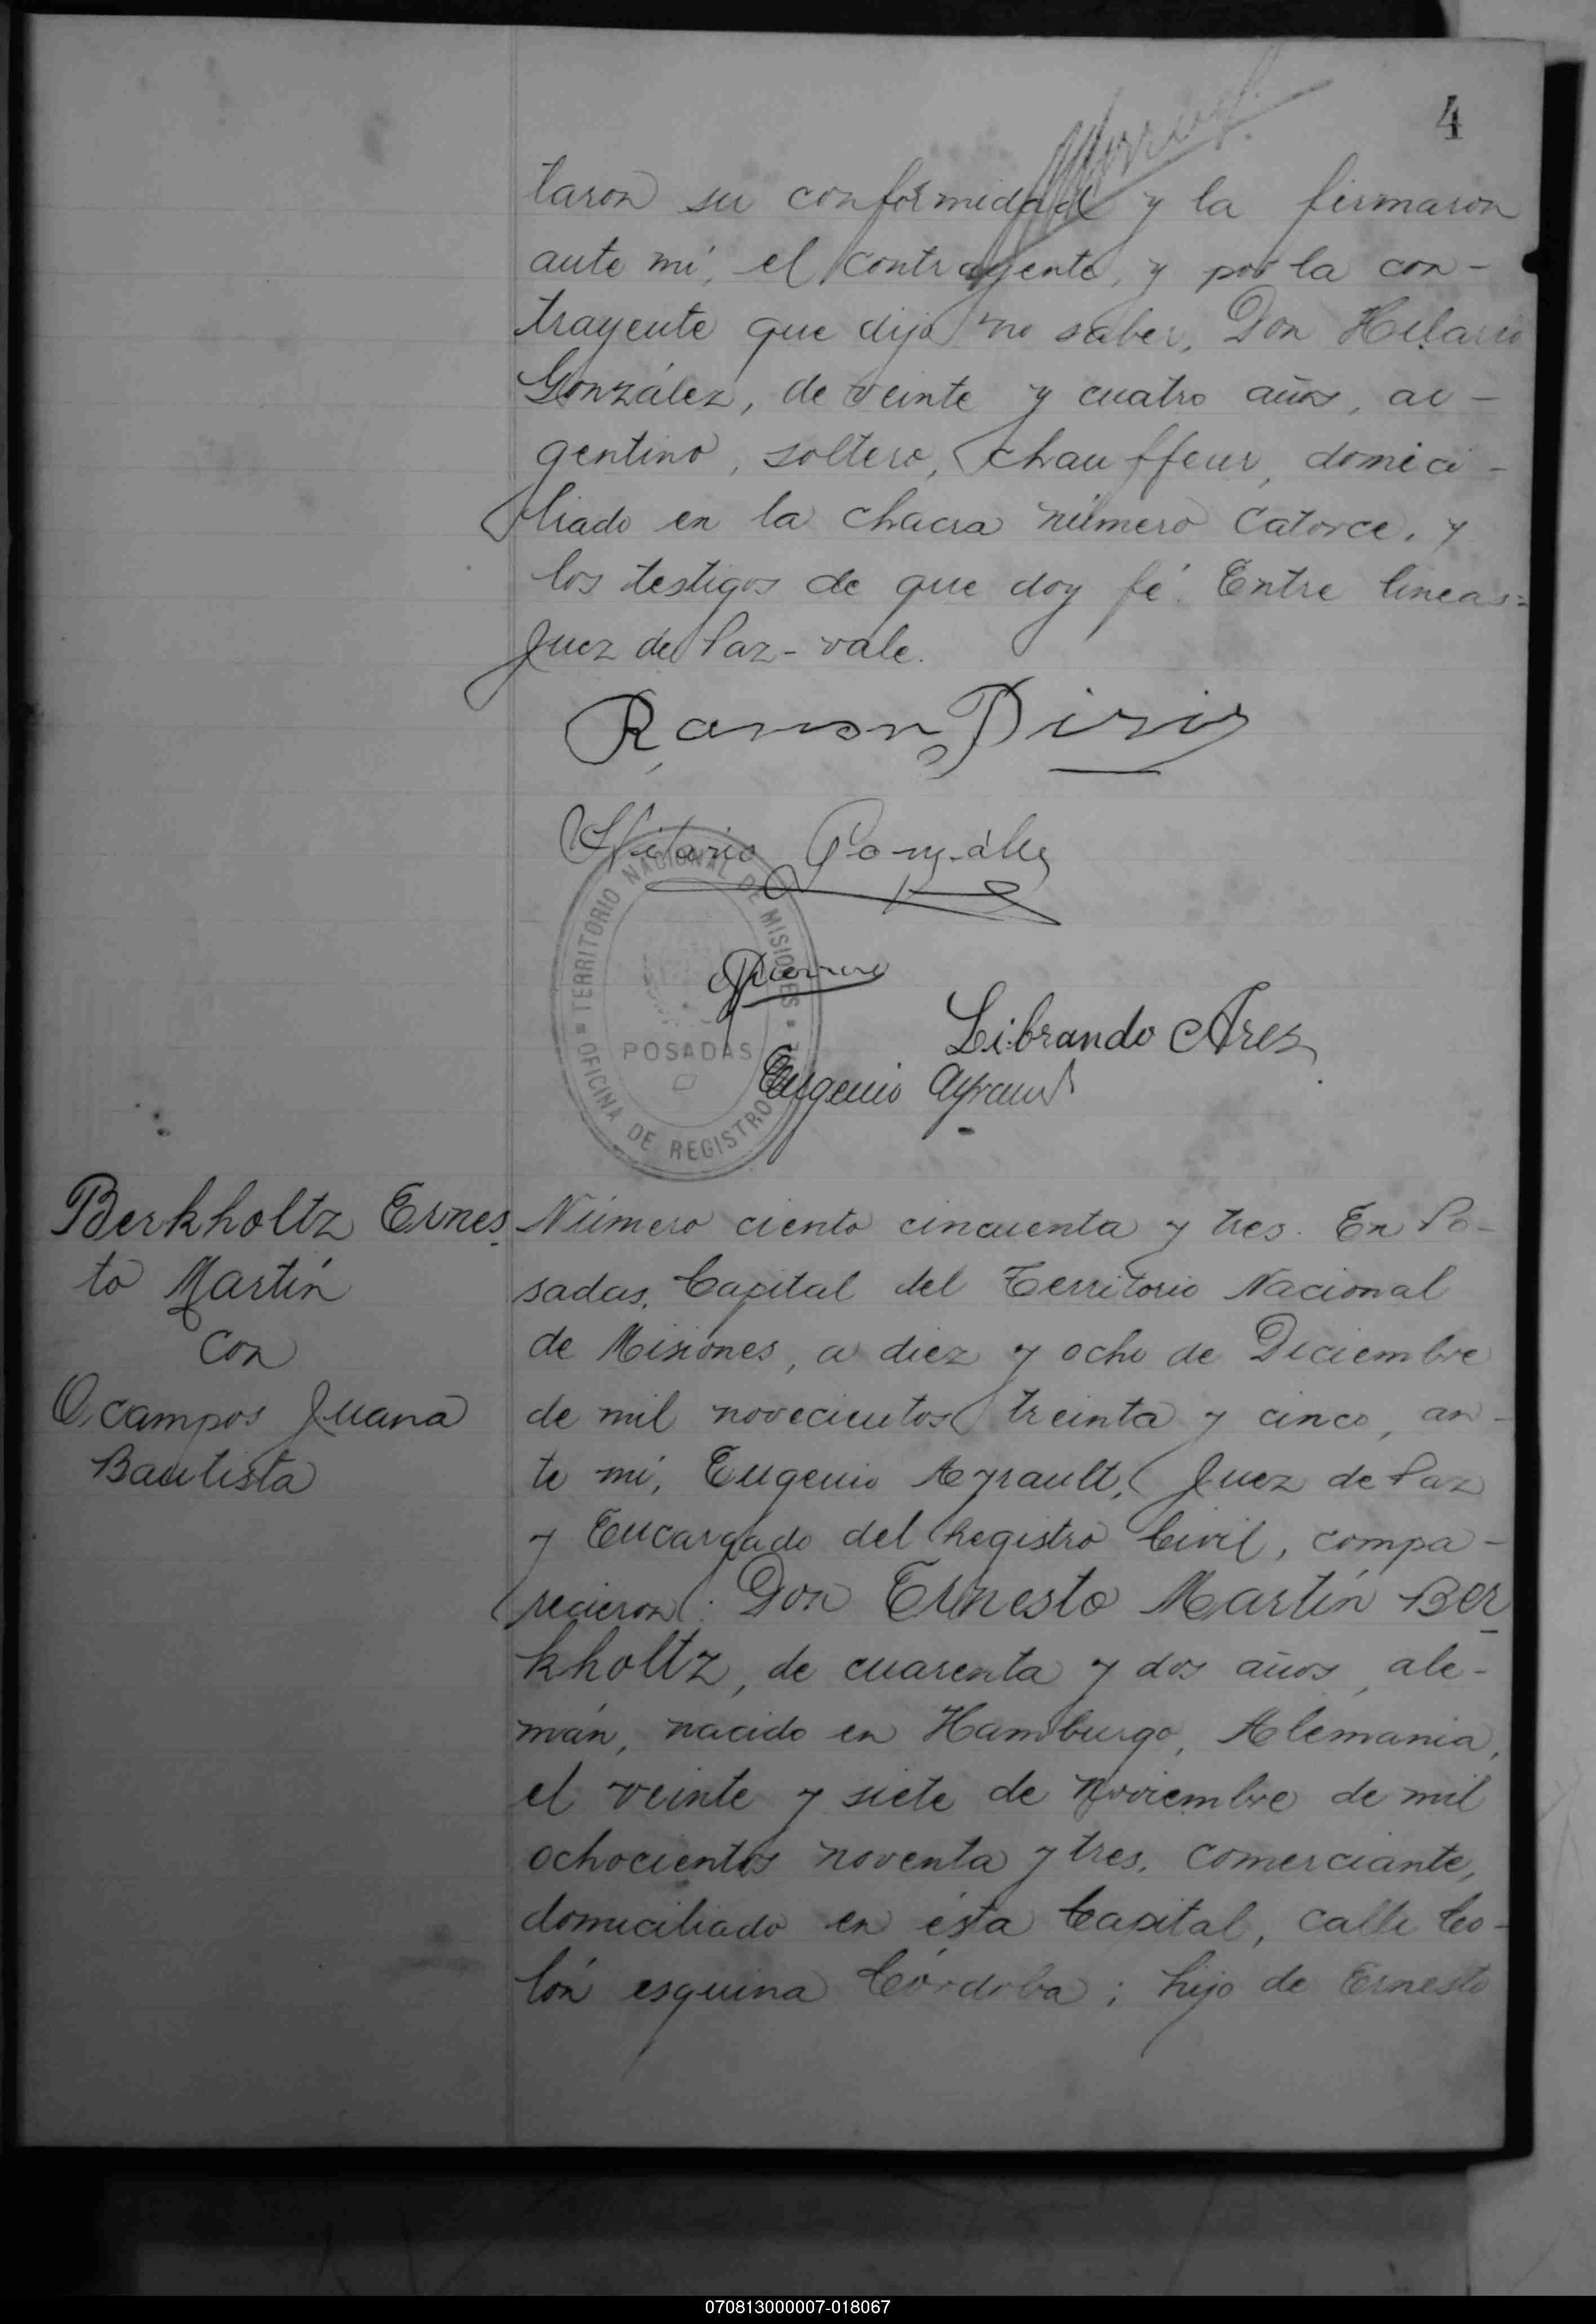 4
taron su conformidad y la firmaron
ante mí, el contrayente, y por la con-
trayente que dijo no saber, Don Hilario
González, de veinte y cuatro años, ar-
gentino, soltero, chauffeur, domici-
liado en la chacra número catorce, y
los testigos de que doy fé. Entre lineas=
Juez de Paz - vale.
Ramon
Hilario González
TERRITORIO NACIONAL DE MISIONES
POSADAS
OFICINA DE REGISTRO
Librando Ares
Eugenio Ayrault
Berkholtz Ernes
to Martín
con
Ocampos Juana
Bautista
Número ciento cincuenta y tres. En Po-
sadas, Capital del Territorio Nacional
de Misiones, a diez y ocho de Diciembre
de mil novecientos treinta y cinco, an-
te mí, Eugenio Ayrault, Juez de Paz
y Encargado del Registro Civil, compa-
recieron: Don Ernesto Martín Ber
kholtz, de cuarenta y dos años, ale-
mán, nacido en Hamburgo, Alemania,
el veinte y siete de Noviembre de mil
ochocientos noventa y tres, comerciante,
domiciliado en ésta Capital, calle Co-
lón esquina Córdoba; hijo de Ernesto
070813000007-018067